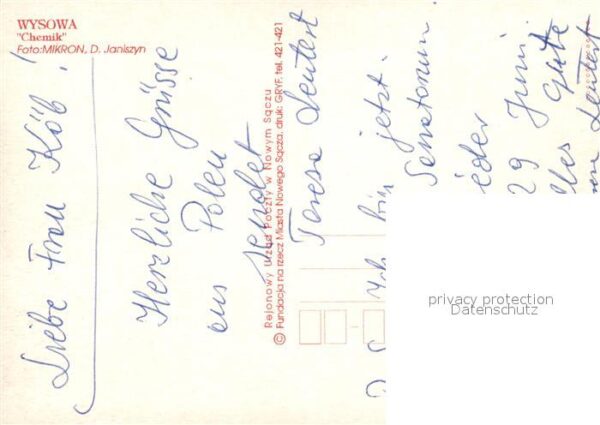 WYSOWA
"Chemik"
Foto:MIKRON, D. Janiszyn
Liebe Frau Köb!
Herzliche Grüsse
aus Polen
sendet
Teresa Leutert
Rejonowy Urząd Poczty w Nowym Sączu
© Fundacja na rzecz Miasta Nowego Sącza, druk: GRYF, tel. 421-421
Ich bin jetzt
Senatorium
29 Juni
Gute
privacy protection
Datenschutz